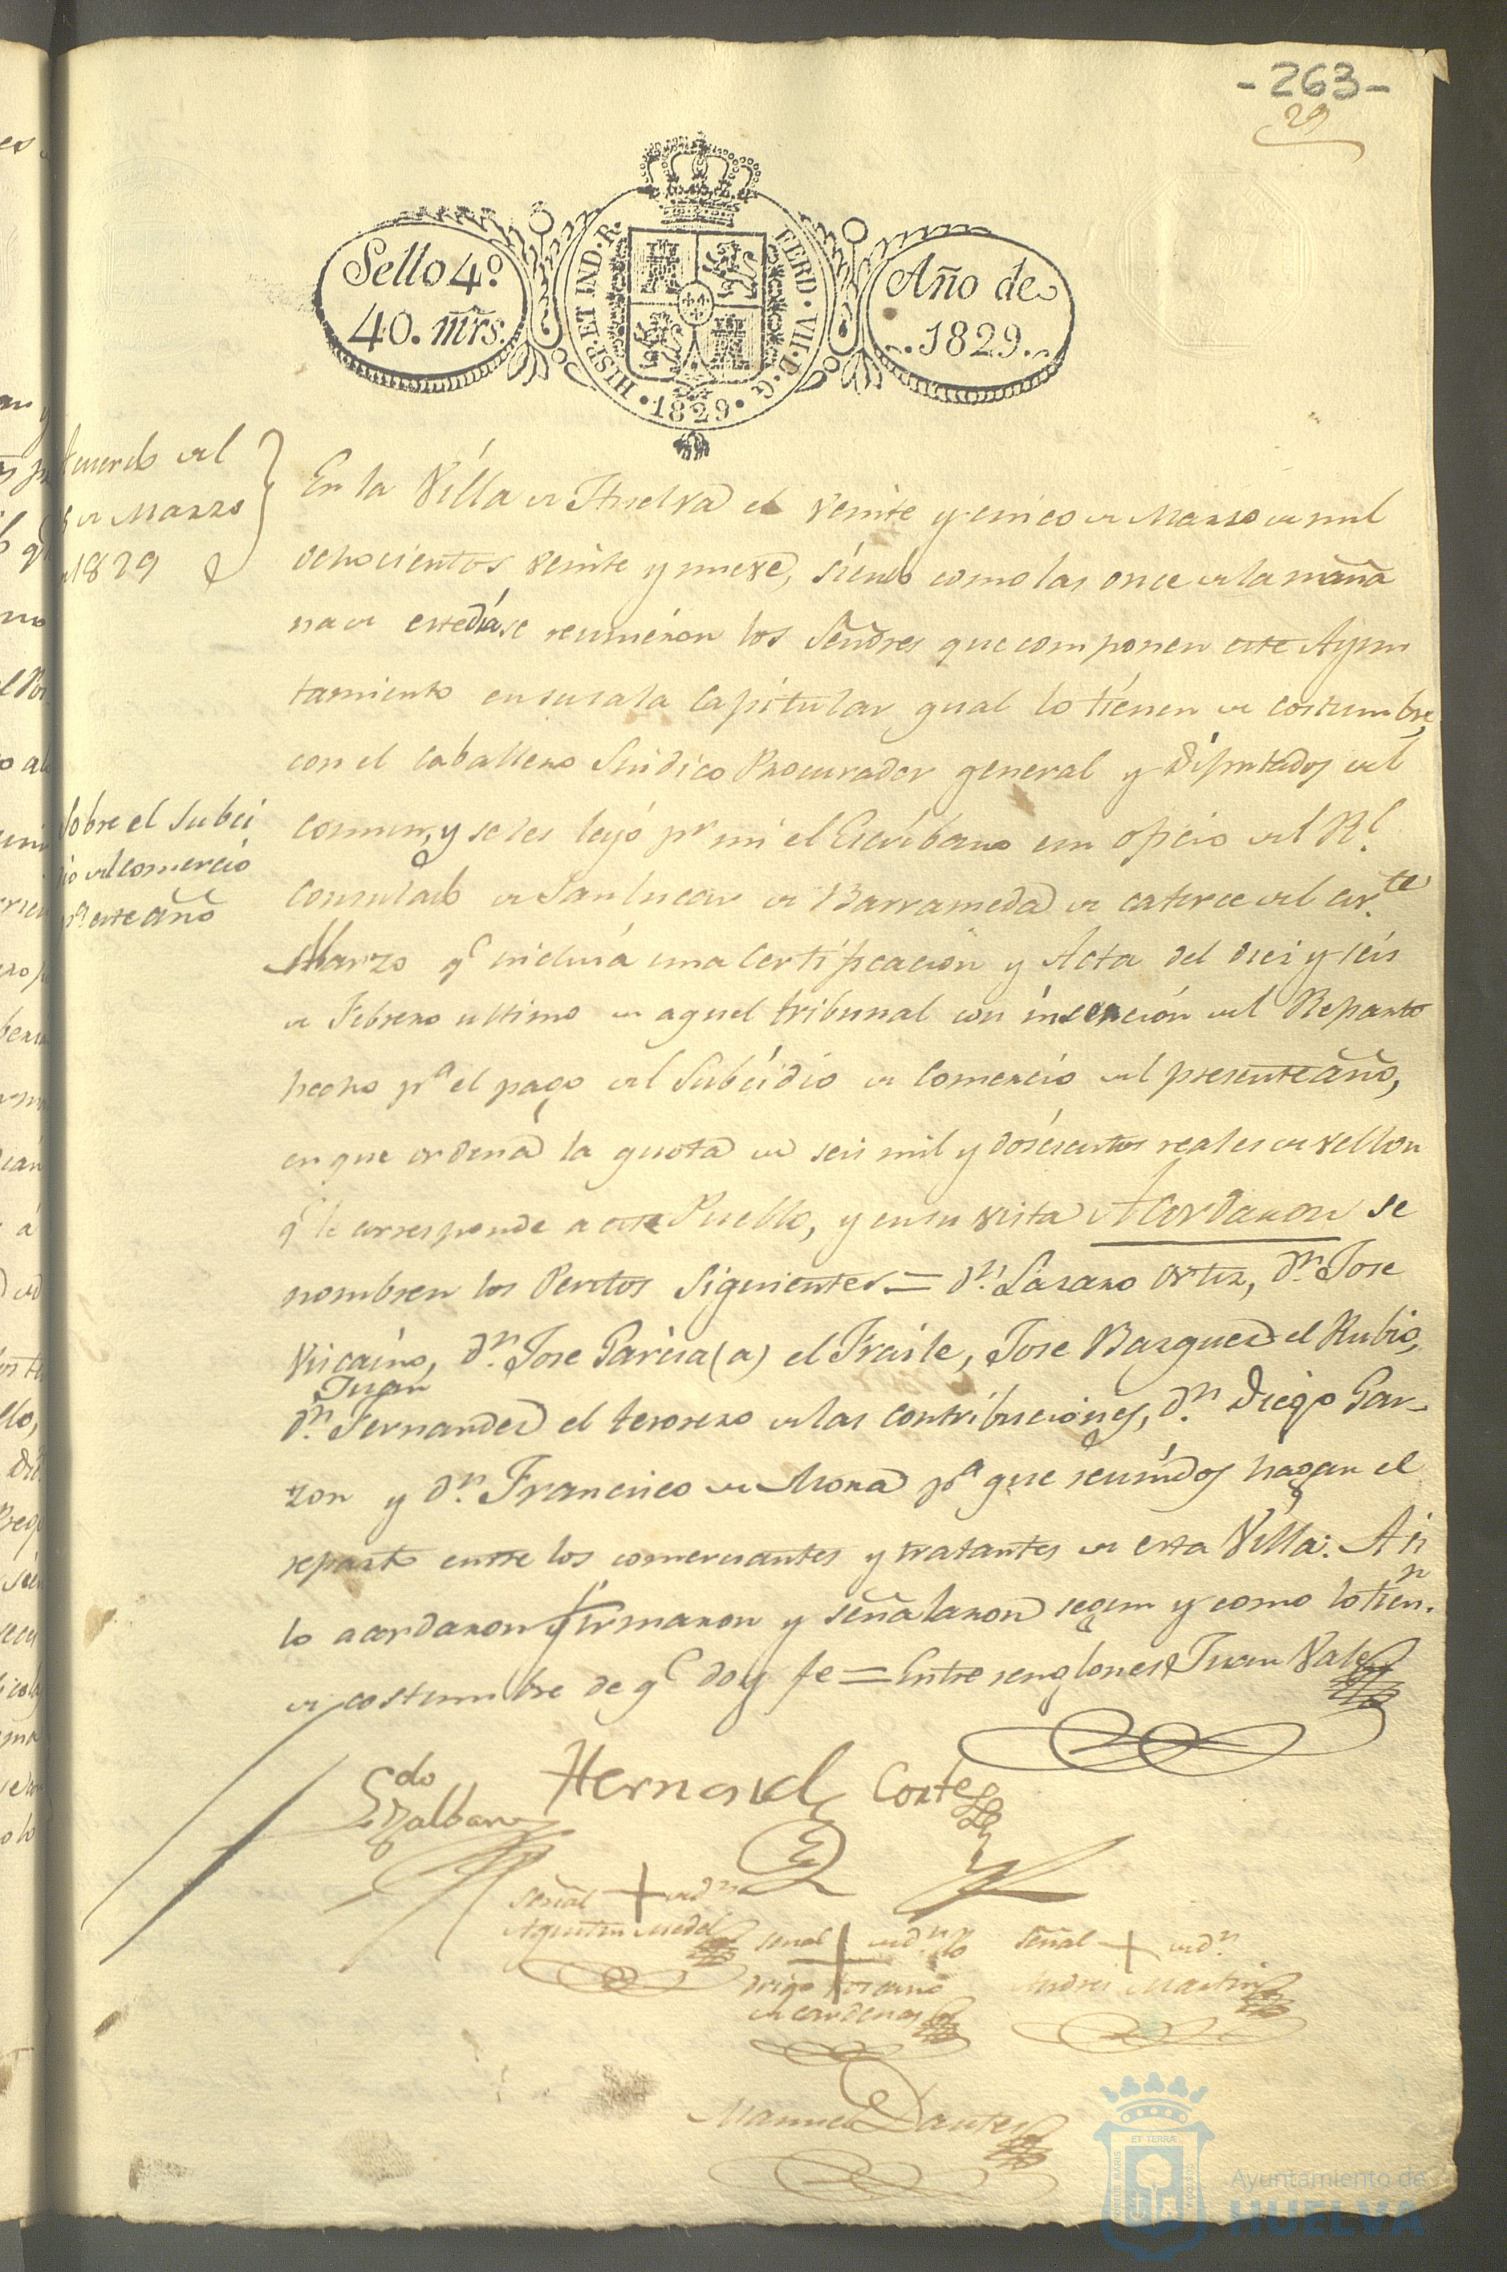 -263-
29
Sello 4º.
40. mrs.
HISP. ET IND. R. FERD. VII. D. G. 1829.
Año de
1829.
Acuerdo del
de Marzo
1829
En la Villa de Huelva el veinte y cinco de Marzo de mil
ochocientos veinte y nueve, siendo como las once de la maña
na de este dia, se reunieron los Señores que componen este Ayun
tamiento en su sala Capitular qual lo tienen de costumbre,
con el Caballero Sindico Procurador general y Diputados del
comun, y se les leyó pr mi el Escribano un oficio del Rl.
Sobre el Subci
dio del comercio
pa. este año
Consulado de Sanlucar de Barrameda de catorce del corte
Marzo qe incluia una Certificacion y Acta del diez y seis
de Febrero ultimo de aquel tribunal con insercion del Reparto
hecho pa el pago del Subcidio de Comercio del presente año,
en que ordena la quota de seis mil y doscientos reales de vellon
qe le corresponde a este Pueblo, y en su vista Acordaron se
nombren los Peritos Siguientes = Dn. Lazaro Ortiz, Dn. Jose
Viscaino, Dn. Jose Garcia (a) el Fraile, Jose Bazquez el Rubio,
Juan
Dn. Fernandez el tesorero de las contribuciones, Dn. Diego Gar-
zon y Dn. Francisco de Mora pa que reunidos hagan el
reparto entre los comerciantes y tratantes de esta Villa: Asi
lo acordaron firmaron y señalaron segun y como lo tienn.
de costumbre de qe doy fe = Entre renglones Juan Vale
Ldo
Hernand Cortes
Señal + de Dn
Agustin Medel
Señal + de Dn
Diego
de Cardenas
Señal + de Dn
Andres Martin
Manuel Dantes
ET TERRAE
Ayuntamiento de
HUELVA